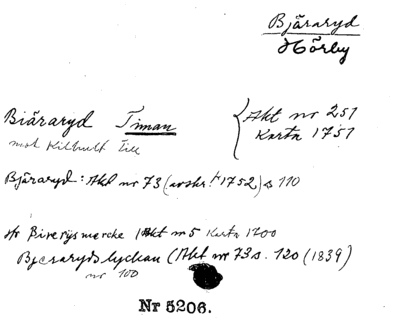 Bjäraryd
Hörby
Biäraryd Timan
mot Kilhult till
Akt nr 251
Karta 1751
Bjäraryd: Akt nr 73 (avskr. fr 1752) s 110
Akt nr 5 Karta 1700
Bjeraryds lyckan (Akt nr 73 s. 120 (1839)
nr 100
Nr 5206.